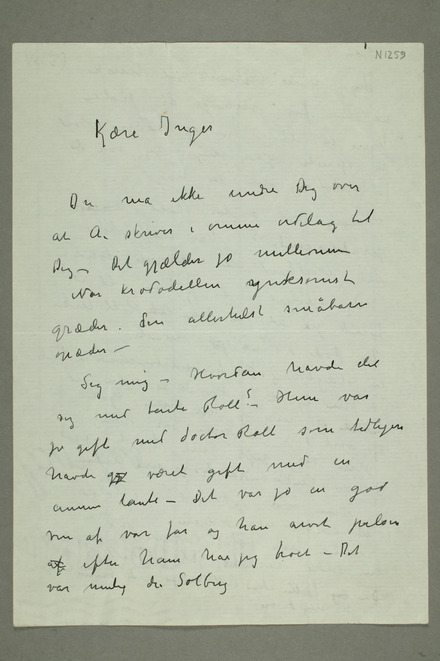 N1253
Kære Inger
Du må ikke undre Dig over
at A. skriver i ømme udslag til
Dig – Det gælder jo millionen
Når krododellen synksomst
græder. Den allerhelst småbørn
opæder –
Sig mig – Hvordan havde det
sig med tante Roll? – Hun var
jo gift med doctor Roll som tidligere
havde været gift med en
annen tante – Det var jo en god
ven af var far og han
efter ham har jeg hort – Det
var mulig die Solberg